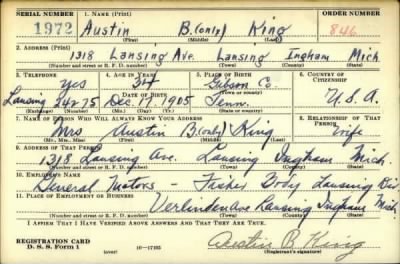 SERIAL NUMBER 1. NAME (Print) ORDER NUMBER
1972 Austin B.(only) King 846
(First) (Middle) (Last)
2. ADDRESS (Print)
1318 Lansing Ave. Lansing Ingham Mich
(Number and street or R. F. D. number) (Town) (County) (State)
3. TELEPHONE 4. AGE IN YEARS 5. PLACE OF BIRTH 6. COUNTRY OF CITIZENSHIP
Yes 34 Gibson Co.
DATE OF BIRTH
Lansing 24275 Dec. 17, 1905 Tenn. U.S.A.
(Exchange) (Number) (Mo.) (Day) (Yr.) (State or country)
7. NAME OF PERSON WHO WILL ALWAYS KNOW YOUR ADDRESS 8. RELATIONSHIP OF THAT PERSON
Mrs Austin B.(only) King wife
(Mr., Mrs., Miss) (First) (Middle) (Last)
9. ADDRESS OF THAT PERSON
1318 Lansing Ave. Lansing Ingham Mich.
(Number and street or R. F. D. number) (Town) (County) (State)
10. EMPLOYER'S NAME
General Motors - Fisher Body Lansing Div
11. PLACE OF EMPLOYMENT OR BUSINESS
Verlinden Ave Lansing Ingham Mich
(Number and street or R. F. D. number) (Town) (County) (State)
I AFFIRM THAT I HAVE VERIFIED ABOVE ANSWERS AND THAT THEY ARE TRUE.
REGISTRATION CARD
D. S. S. FORM 1 (over) 16—17105
Austin B. King
(Registrant's signature)